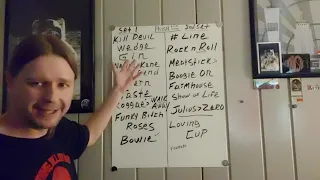 Set 1
Kill Devil
Wedge
Gin
Taste
Reggae > Walk Away
Funky Bitch
Roses
Bowie
2nd Set
# Line
Rock n Roll
Meatstick >
Boogie On
Farmhouse
Show of Life
Julius > Zero
Loving
Cup